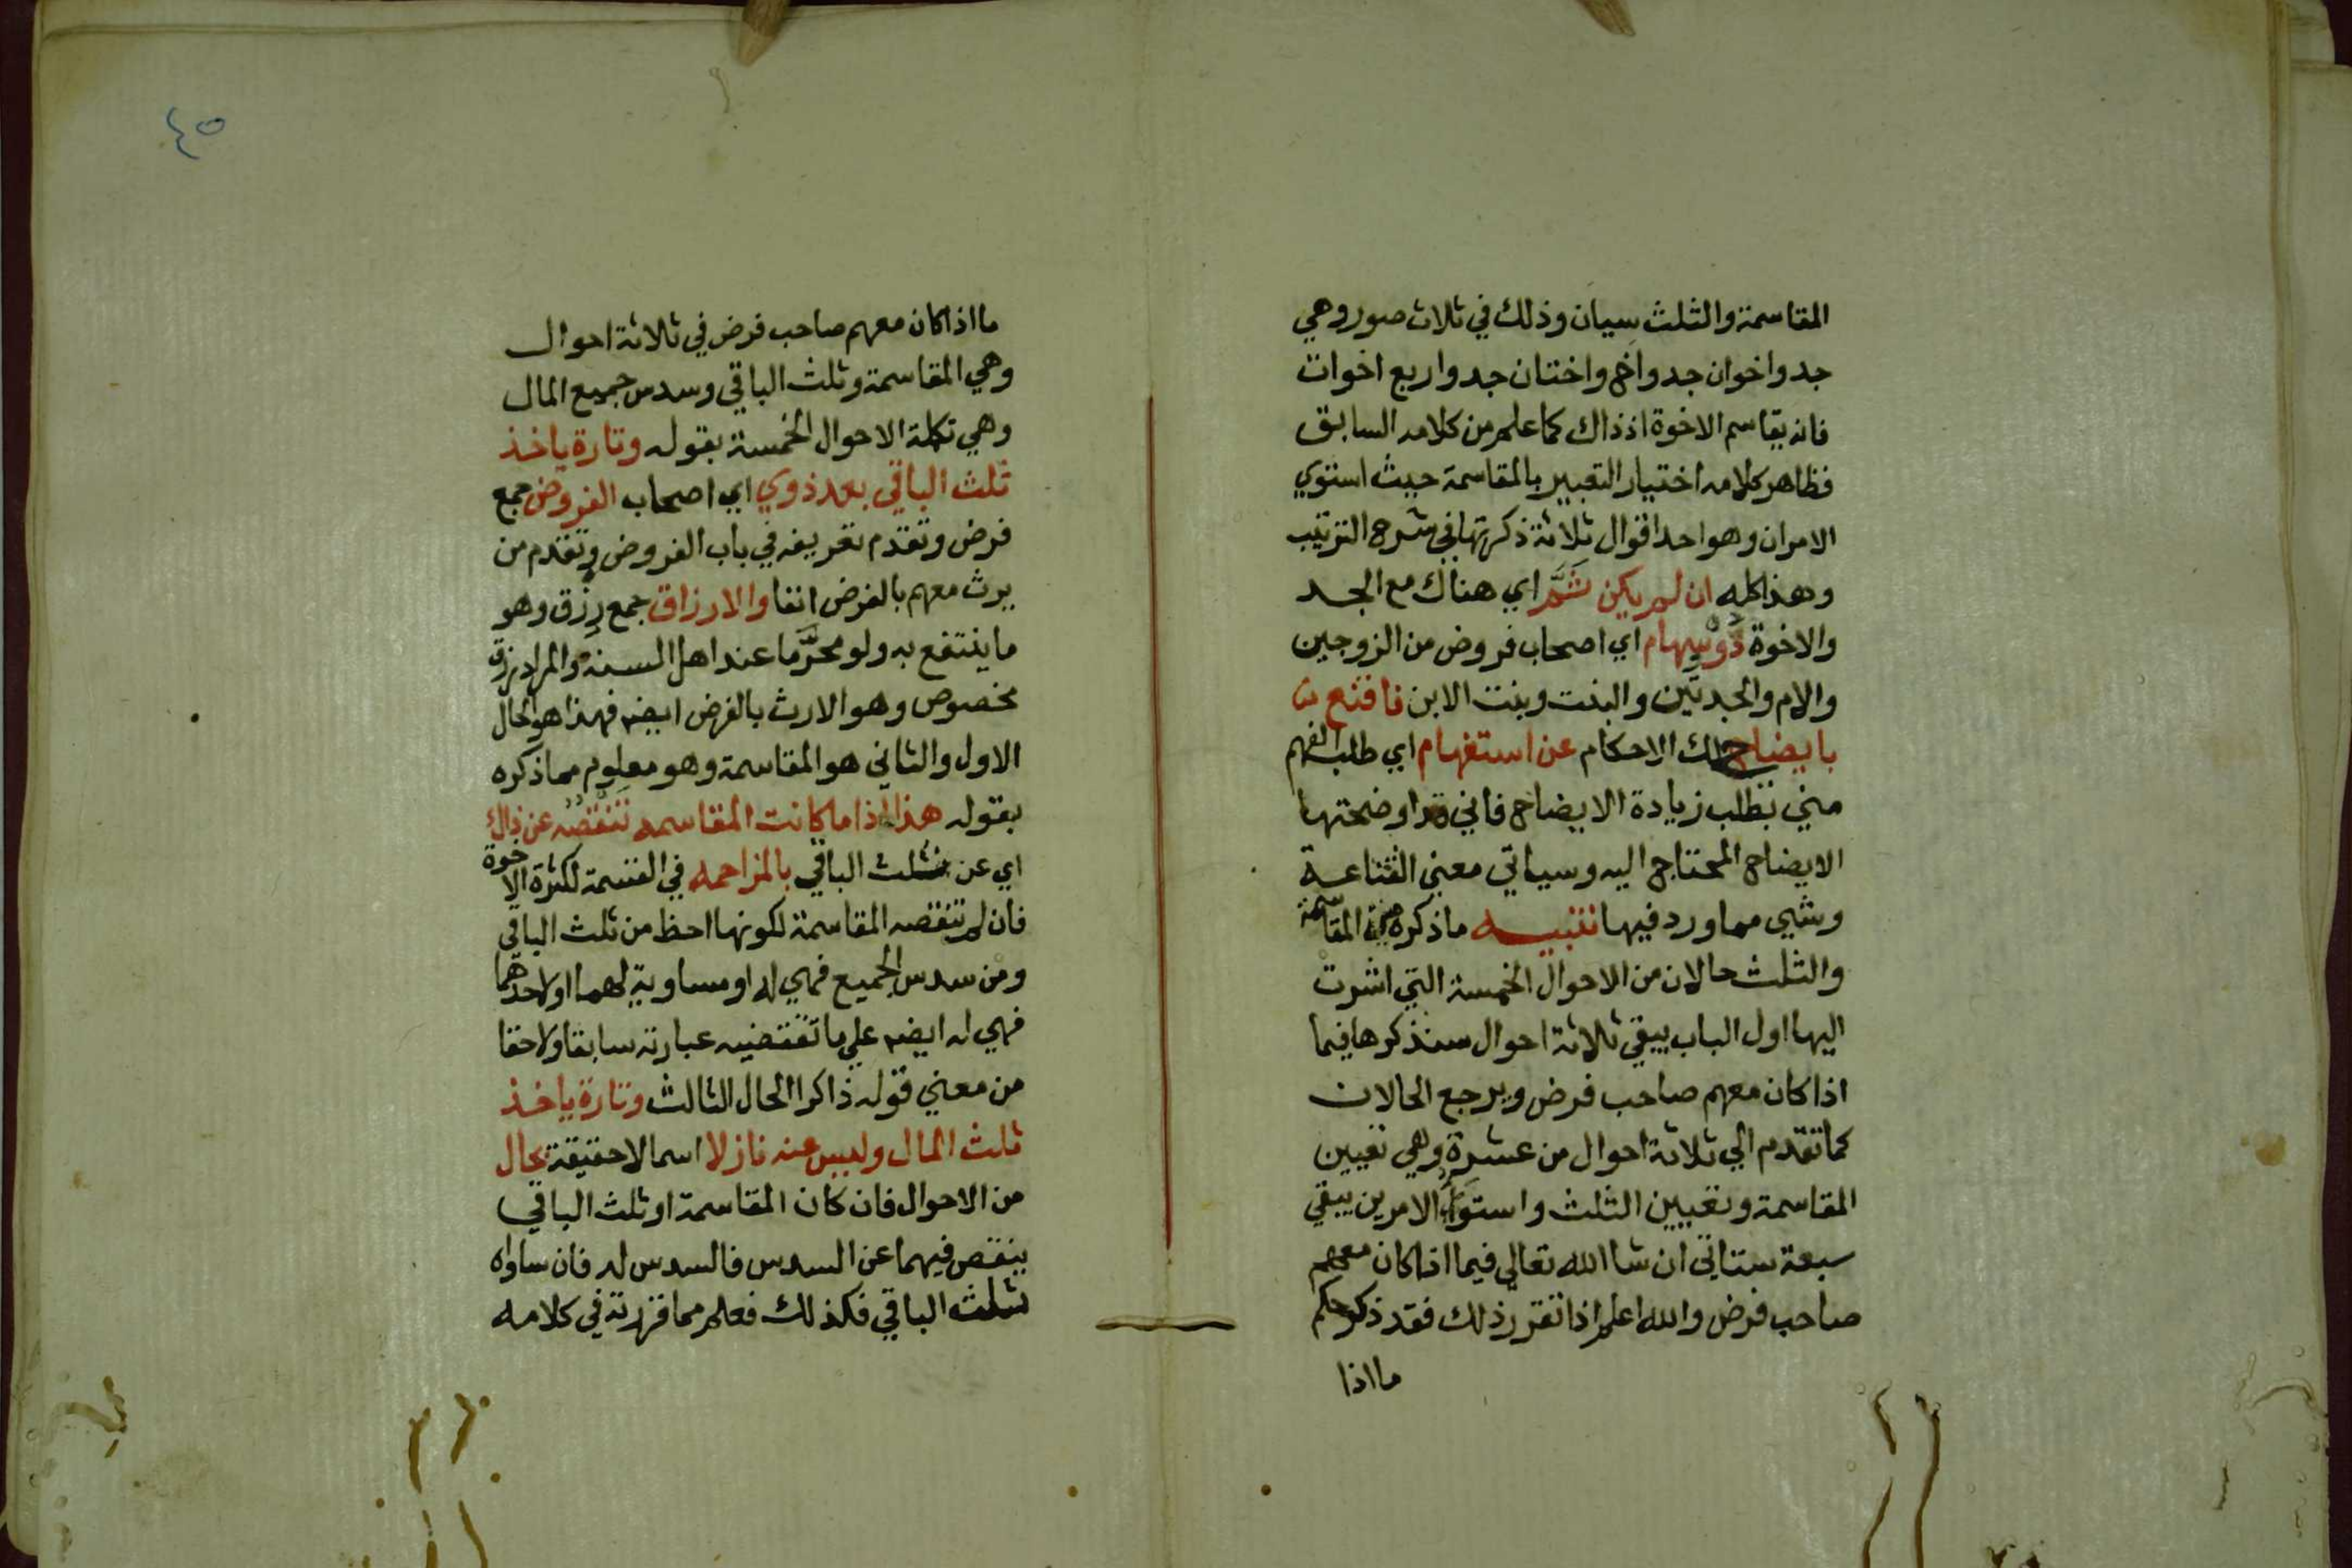 المقاسمة والثلث سيان وذلك في ثلاث صور وهي
جد واخوان جد واخ واختان جد واربع اخوات
فانه يقاسم الاخوة اذ ذاك كما علم من كلامه السابق
فظاهر كلامه اختيار التعبير بالمقاسمة حيث استوي
الامران وهو احد اقوال ثلاثة ذكرتها في شرح الترتيب
وهذا كله ان لم يكن ثَمَّ اي هناك مع الجد
والاخوة ذو سهام اي اصحاب فروض من الزوجين
والام والجدتين والبنت وبنت الابن فاقنع
بايضاحي لك الاحكام عن استفهام اي طلب الفهم
مني بطلب زيادة الايضاح فاني قد اوضحتها
الايضاح المحتاج اليه وسياتي معني القناعة
وشي مما ورد فيها تنبيه ما ذكره من المقاسمة
والثلث حالان من الاحوال الخمسة التي اشرت
اليها اول الباب يبقي ثلاثة احوال سنذكرها فيما
اذا كان معهم صاحب فرض ويرجع الحالان
كما تقدم الي ثلاثة احوال من عشرة وهي تعيين
المقاسمة وتعيين الثلث واستواء الامرين يبقي
سبعة ستاتي ان شا الله تعالي فيما اذا كان معهم
صاحب فرض والله اعلم اذا تقرر ذلك فقد ذكر حكم
ما اذا
٤٥
ما اذا كان معهم صاحب فرض في ثلاثة احوال
وهي المقاسمة وثلث الباقي وسدس جميع المال
وهي تكملة الاحوال الخمسة بقوله وتارة ياخذ
ثلث الباقي بعد ذوي اي اصحاب الفروض جمع
فرض وتقدم تعريفه في باب الفروض وتقدم من
يرث معهم بالفرض انفا والارزاق جمع رزق وهو
ما ينتفع به ولو محرَّما عند اهل السنة والمراد رزق
مخصوص وهو الارث بالفرض ايضه فهذا هو الحال
الاول والثاني هو المقاسمة وهو معلوم مما ذكره
بقوله هذا اذا ما كانت المقاسمه تنقصه عن ذاك
اي عن ثلث الباقي بالمزاحمه في القسمة لكثرة الاخوة
فان لم تنقصه المقاسمة لكونها احظ من ثلث الباقي
ومن سدس الجميع فهي له او مساوية لهما او لاحدهما
فهي له ايضه علي ما تقتضيه عبارته سابقا ولاحقا
من معني قوله ذاكرا الحال الثالث وتارة ياخذ
ثلث المال وليس عنه نازلا اسما لا حقيقة بحال
من الاحوال فان كان المقاسمة او ثلث الباقي
ينقص فيهما عن السدس فالسدس له فان ساواه
ثلث الباقي فكذلك فعلم مما قررته في كلامه